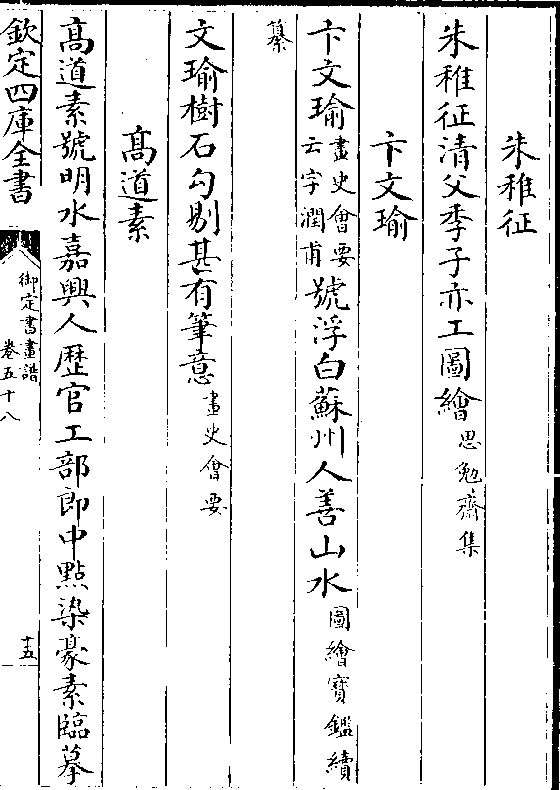 朱稚征
朱稚征清父季子亦工圖繪思勉齋集
卞文瑜
卞文瑜畫史會要云字潤甫號浮白蘇州人善山水圖繪寶鑑續
纂
文瑜樹石勾剔甚有筆意畫史會要
高道素
高道素號明水嘉興人歴官工部郎中點染豪素臨摹
欽定四庫全書
御定書畫譜
卷五十八
十五